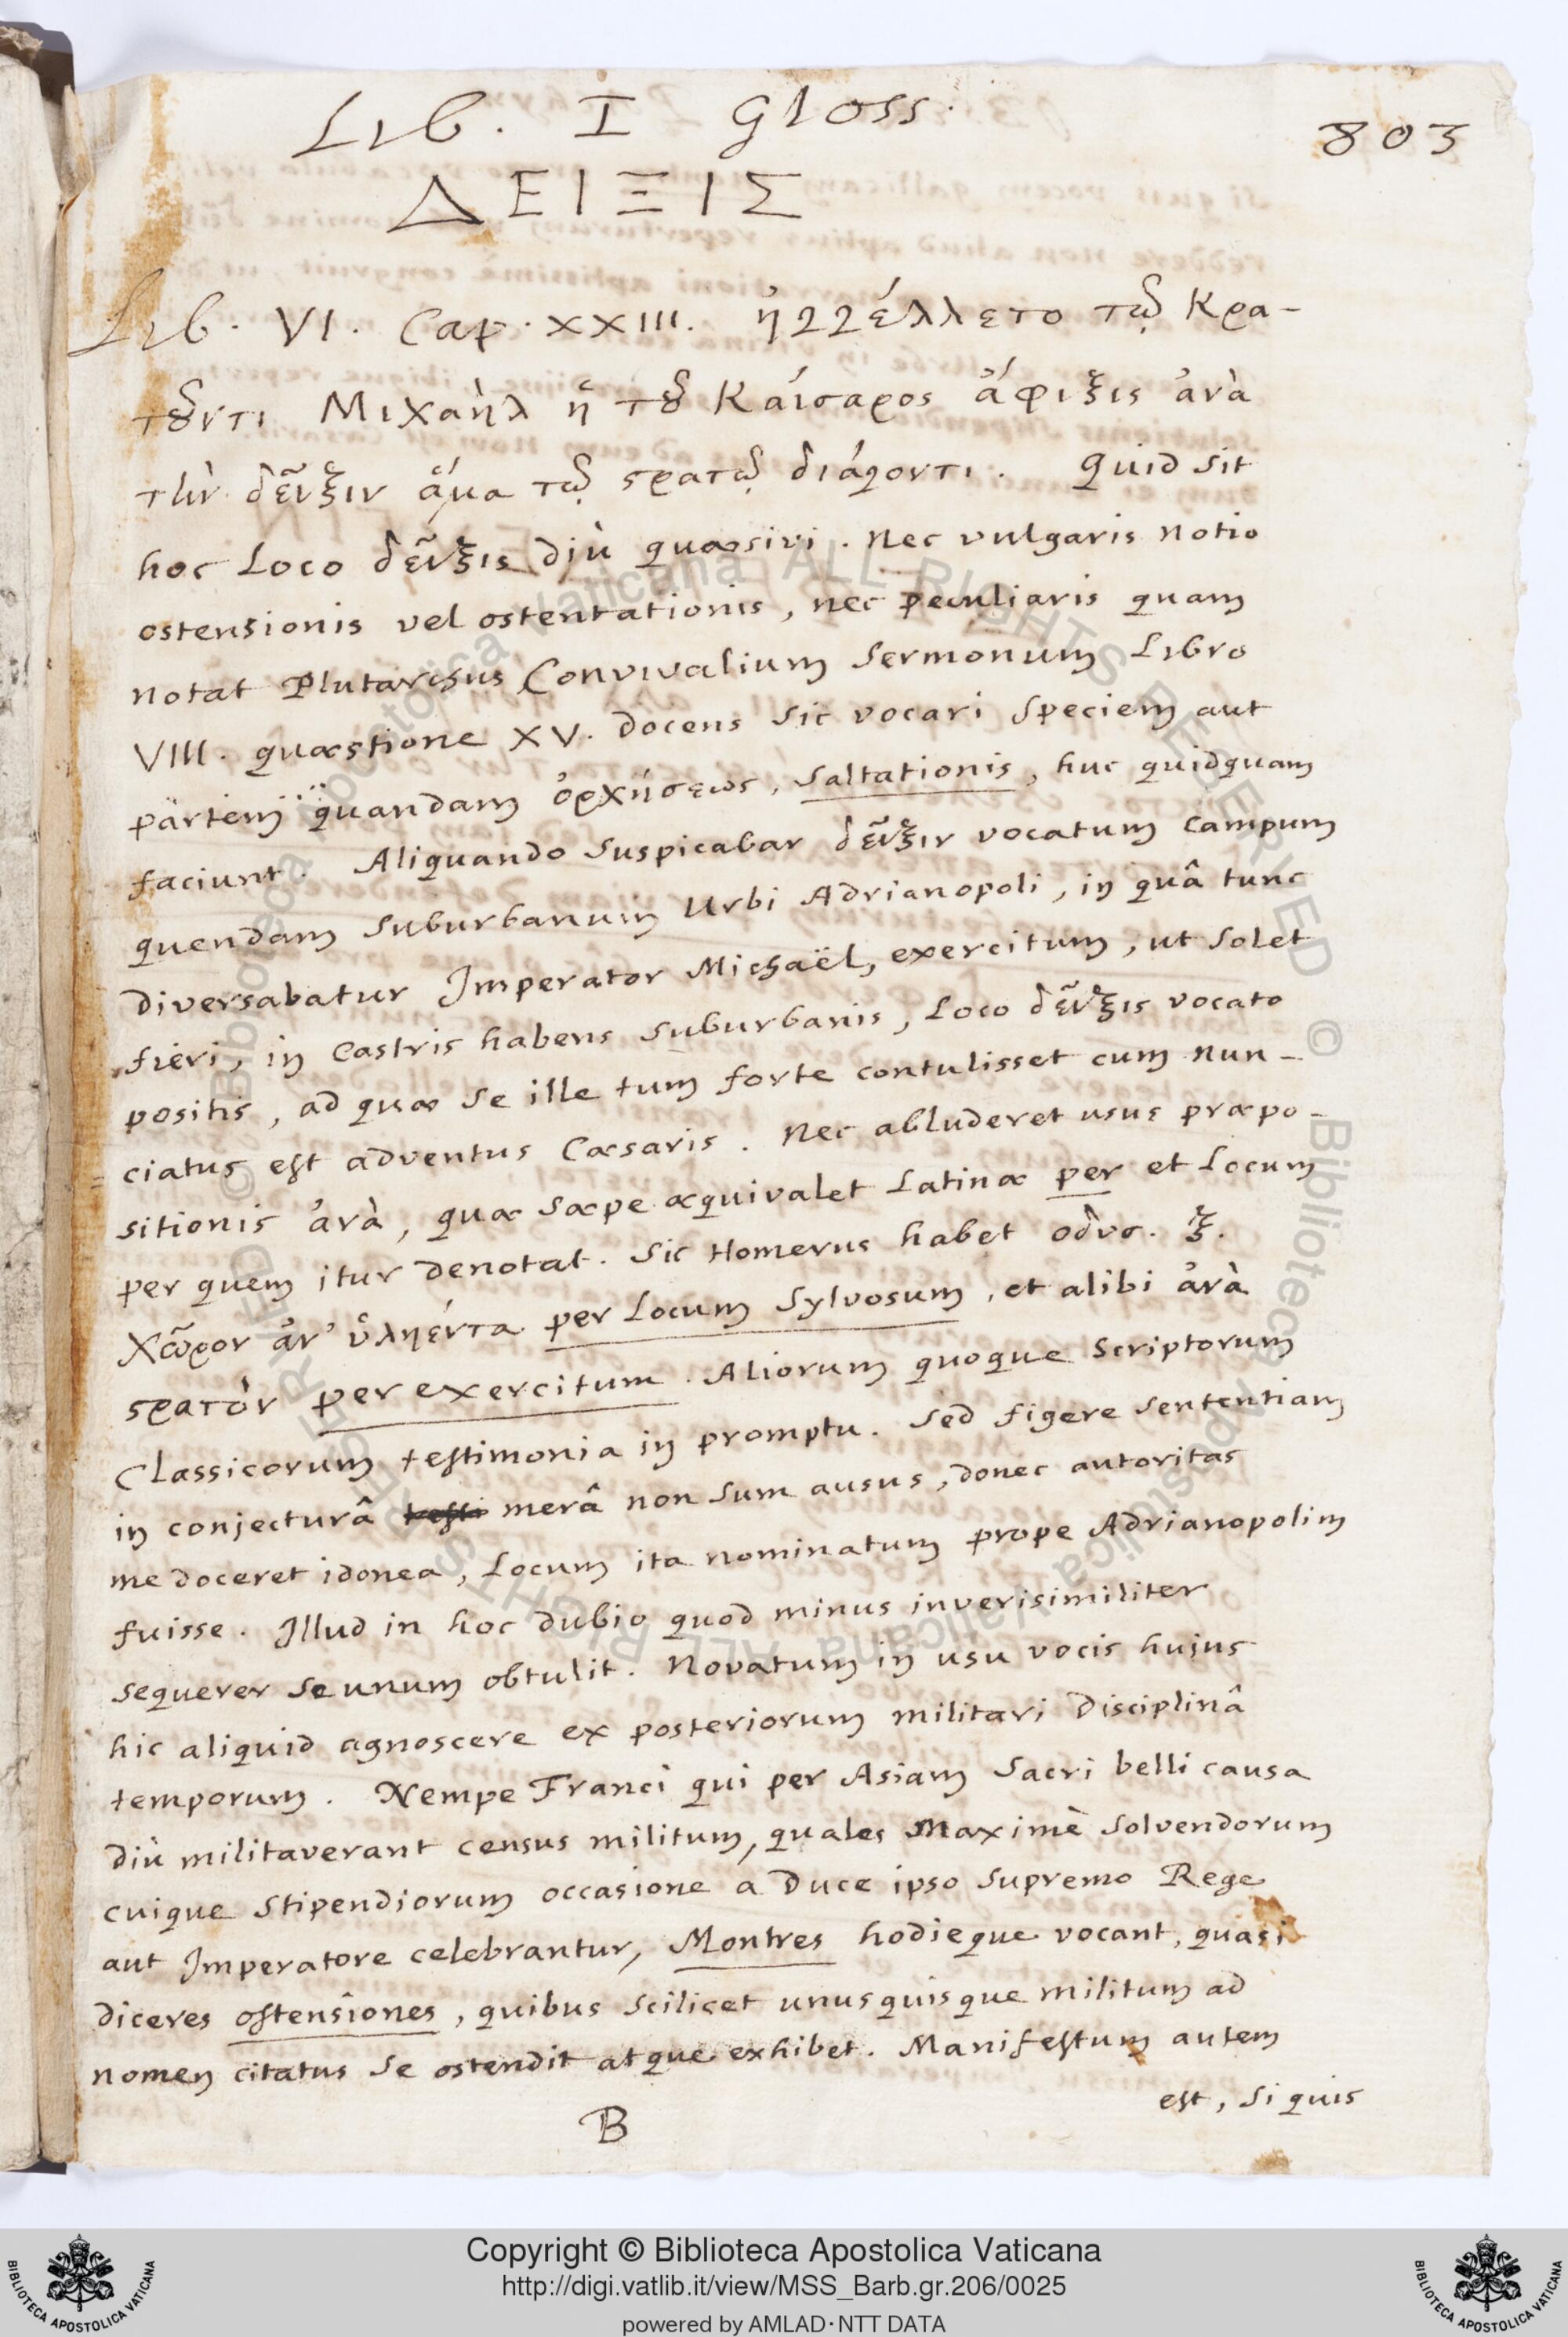 Lib. I Gloss.
803
ΔΕΙΞΙΣ
Lib. VI. Cap. XXIII. ἠγγέλλετο τῷ Κρα-
τοῦντι Μιχαὴλ ἡ τοῦ Καίσαρος ἄφιξις ἀνὰ
τὴν δεῖξιν ἅμα τῷ στρατῷ διάγοντι. Quid sit
hoc Loco δεῖξις diù quæsivi. Nec vulgaris notio
ostensionis vel ostentationis, nec peculiaris quam
notat Plutarchus Convivalium Sermonum Libro
VIII. quæstione XV. docens sic vocari speciem aut
partem quandam ὀρχήσεως, saltationis, huc quidquam
faciunt. Aliquando suspicabar δεῖξιν vocatum campum
quendam suburbanum Urbi Adrianopoli, in quâ tunc
diversabatur Imperator Michaël, exercitum, ut solet
fieri, in Castris habens suburbanis, Loco δεῖξις vocato
positis, ad quæ se ille tum forte contulisset cum nun-
ciatus est adventus Cæsaris. Nec abluderet usus præpo-
sitionis ἀνὰ, quæ sæpe æquivalet Latinæ per et Locum
per quem itur denotat. Sic Homerus habet οδυσ. ξ.
χῶρον ἀν' ὑλήεντα per Locum sylvosum, et alibi ἀνὰ
στρατὸν per exercitum. Aliorum quoque scriptorum
Classicorum testimonia in promptu. Sed figere sententiam
in conjecturâ merâ non sum ausus, donec autoritas
me doceret idonea, Locum ita nominatum prope Adrianopolim
fuisse. Illud in hoc dubio quod minus inverisimiliter
sequerer se unum obtulit. Novatum in usu vocis hujus
hic aliquid agnoscere ex posteriorum militari disciplinâ
temporum. Nempe Franci qui per Asiam Sacri belli causa
diù militaverant census militum, quales maximè solvendorum
cuique stipendiorum occasione a Duce ipso supremo Rege
aut Imperatore celebrantur, Montres hodieque vocant, quasi
diceres ostensiones, quibus scilicet unusquisque militum ad
nomen citatus se ostendit atque exhibet. Manifestum autem
est, si quis
B
Copyright © Biblioteca Apostolica Vaticana
http://digi.vatlib.it/view/MSS_Barb.gr.206/0025
powered by AMLAD·NTT DATA
BIBLIOTECA APOSTOLICA VATICANA
BIBLIOTECA APOSTOLICA VATICANA